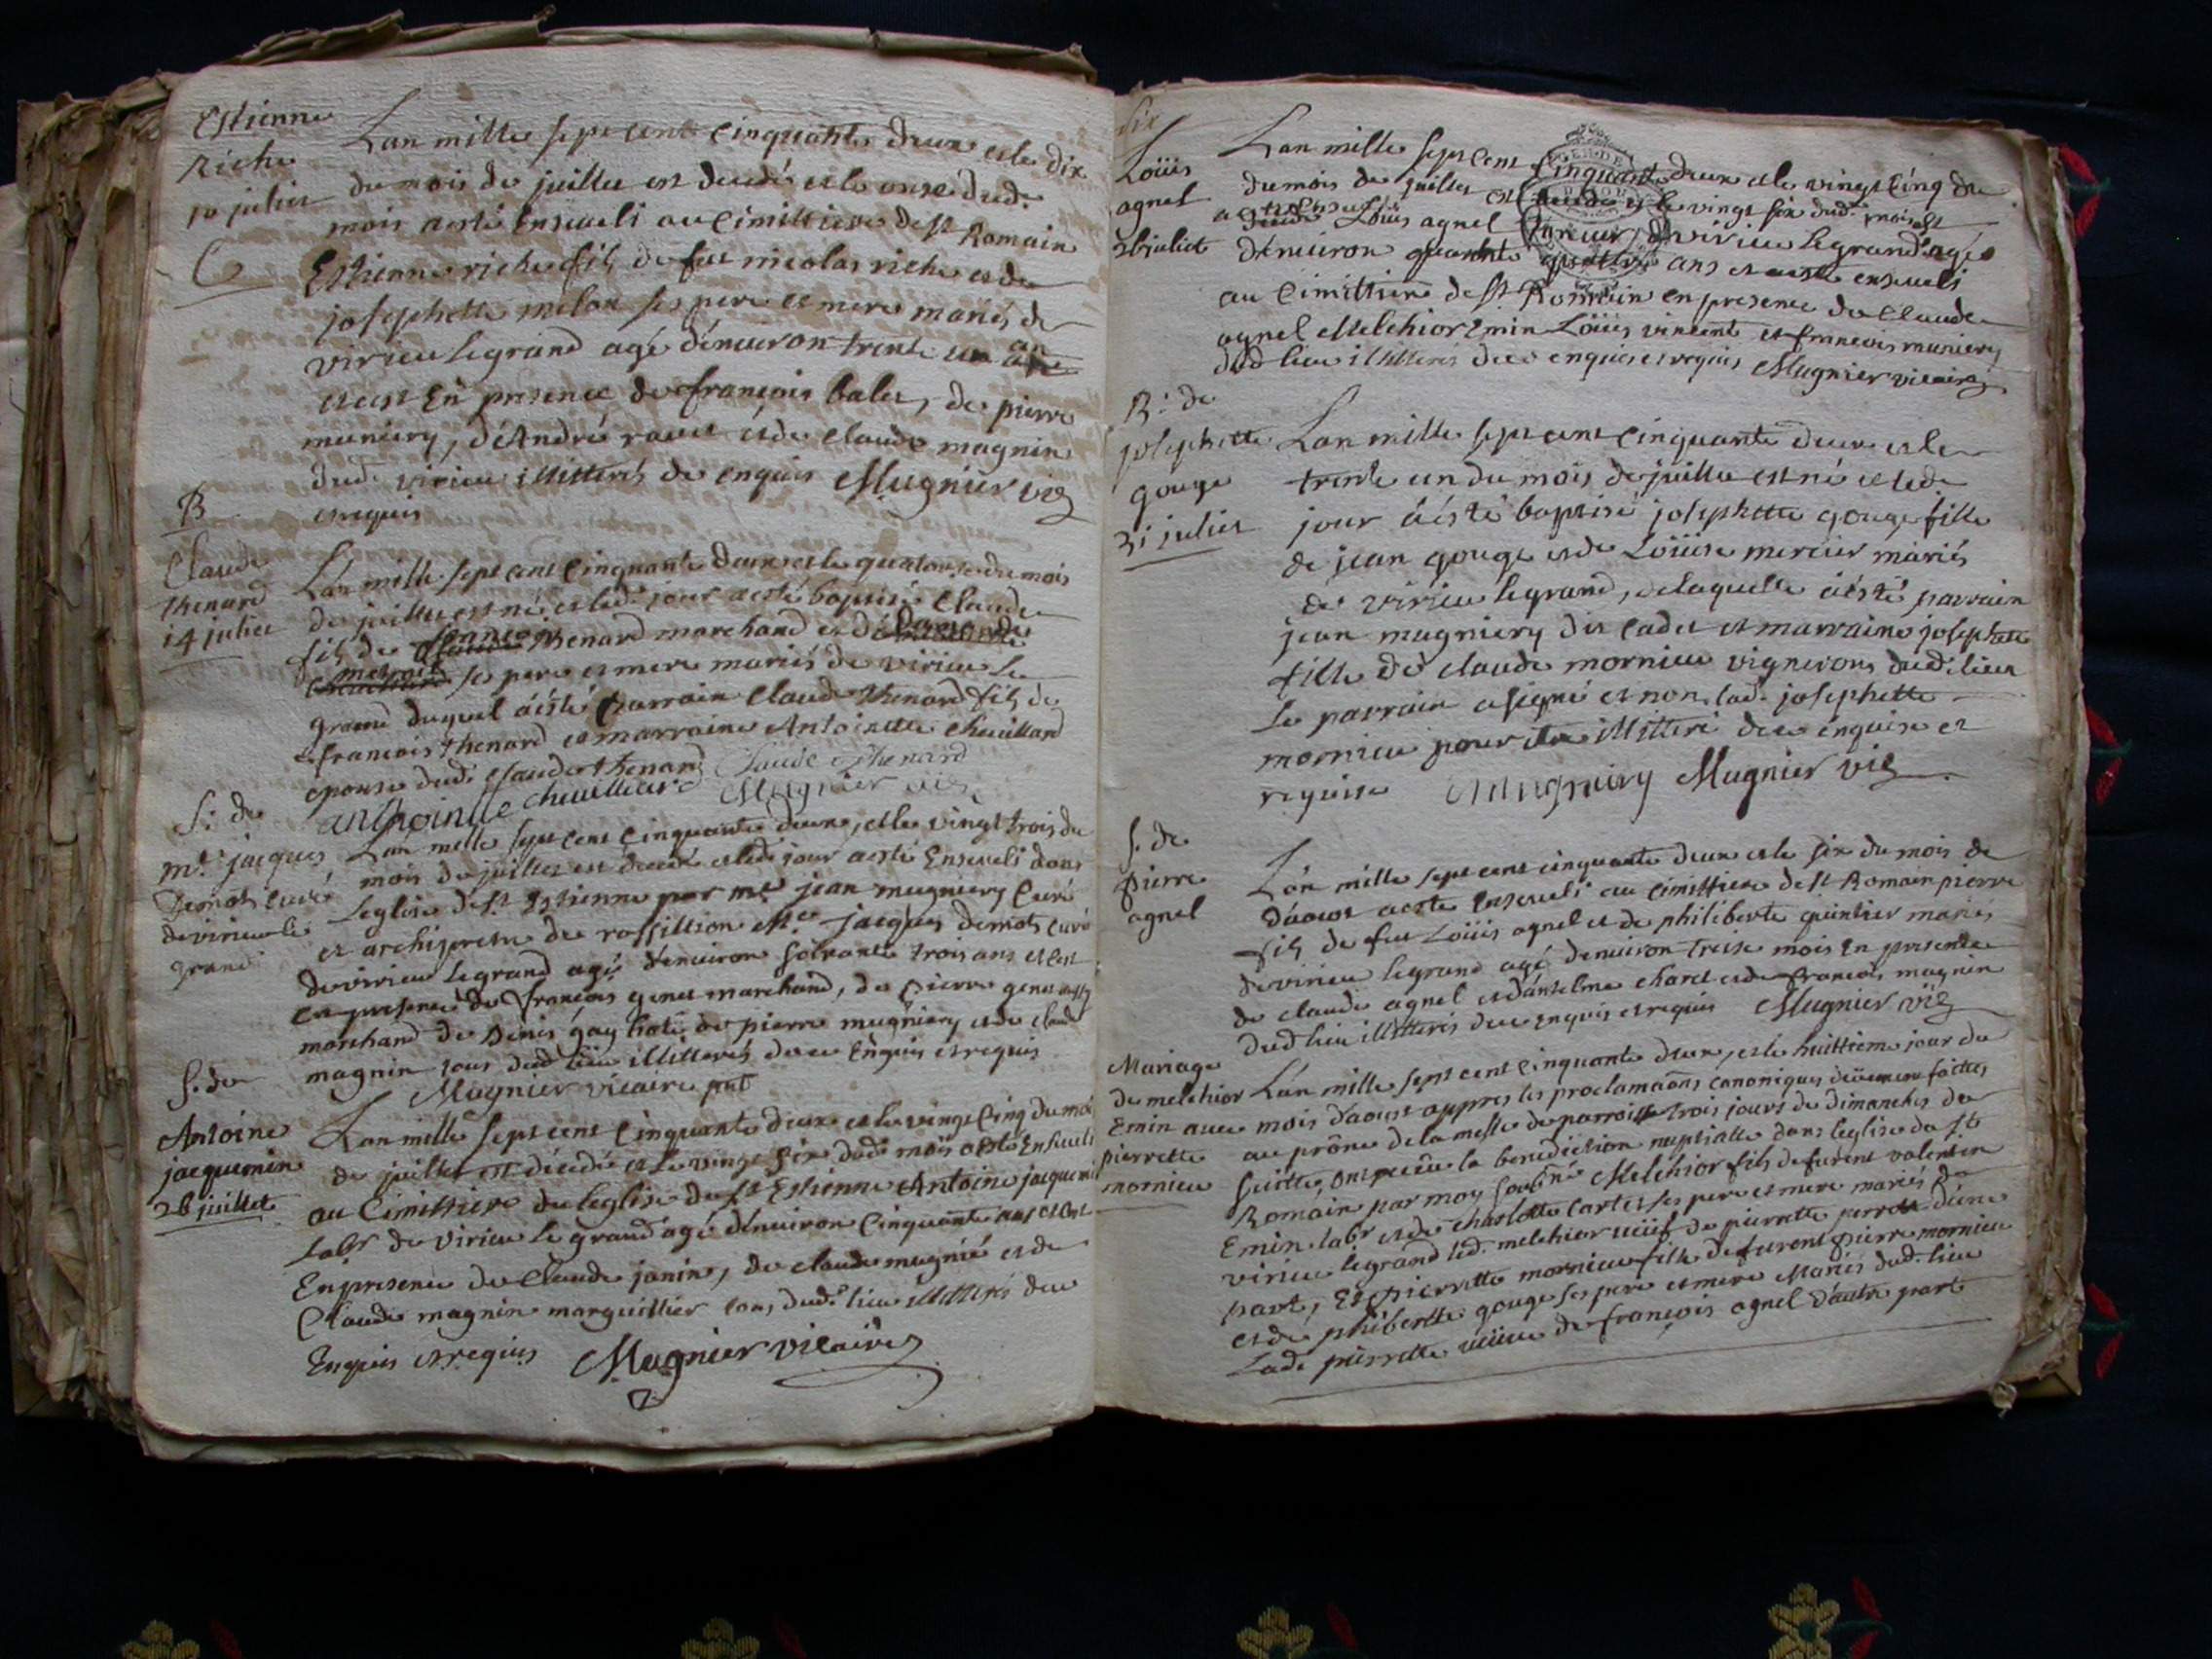 Estienne
Riche
10 julliet
Lan mille sept cent cinquante deux et le dix
du mois de juillet est decedé et le onze dud.
mois a esté Enseveli au cimittiere de st Romain
Estienne riche fils de feu nicolas riche et de
josephette melon ses pere et mere mariés de
virieu le grand agé d'environ trente un an
et cest En presence de francois balet, de pierre
muniery, d'André ravet et de Claude magnin
dud. virieu illitterés de enquis Mugnier vic
et requis
B
Claude
thenard
14 julliet
L'an mille sept cent Cinquante deux et le quatorze du mois
de juillet est né et led. jour a esté baptisé Claude
fils de francois thenard marchand et de
ses pere et mere mariés de virieu le
grand duquel a esté parrain Claude thenard fils de
francois thenard et marraine Antoinette Chevillard
epouse dud. Claude thenard Claude Thenard
anthoinette chevilliard Mugnier vic
S. de
mre jacques
Demots curé
de virieu le
grand
Lan mille sept cent Cinquante deux, et le vingt trois du
mois de juillet est decedé et led. jour a esté Enseveli dans
Leglise de st Estienne par mre jean mugniery Curé
et archipretre de rossillion Mre jacques demots curé
de virieu le grand agé d'environ soixante trois ans et cest
en presence de francois genet marchand, de pierre genet aussy
marchand de Denis gay hote de pierre mugniery et de claude
magnin tous dud. lieu illitterés de ce Enquis et requis
Mugnier vicaire
S. de
Antoine
jacquemin
26 juillet
Lan mille sept cent Cinquante deux et le vingt Cinq du mois
de juillet est décedé et le vingt six dud. mois a esté Enseveli
au Cimittiere de leglise de st Estienne Antoine jacquemin
Labr de virieu le grand agé d'environ Cinquante ans et cest
En presence de Claude janin, de claude mugnié et de
Claude magnin marguillier tous dud. lieu illitterés de ce
Enquis et requis Mugnier vicaire
Six
Loüis
agnel
26 juliet
Lan mille sept Cent Cinquante deux et le vingt Cinq du
du mois de juillet est decedé et le vingt six dud. mois
Loüis agnel de virieu le grand agé
d'environ quarante quattre ans et a esté enseveli
au Cimittiere de st Romain en presence de Claude
agnel Melchior Emin Loüis vincent et francois muniery
dud. lieu illitterés de ce enquis et requis Mugnier vicaire
B: de
josephette
Gouge
31 julliet
Lan mille sept cent Cinquante deux et le
trente un du mois de juillet est né et led.
jour a ésté baptisé josephette gouge fille
de jean gouge et de Loüise mercier mariés
de virieu le grand, de laquelle a ésté parrain
jean mugniery dit cadet et marraine josephette
fille de claude mornieu vignerons dud. lieu
Le parrain a signé et non lad. josephette
mornieu pour etre illitteré de ce enquise et
requise Mugniery Mugnier vic
S. de
pierre
agnel
L'an mille sept cent cinquante deux et le six du mois de
d'aoust a esté Enseveli au Cimittiere de st Romain pierre
fils de feu Loüis agnel et de philiberte quintier mariés
de virieu le grand agé denviron treise mois En presence
de claude agnel et d'anselme charet et de francois magnin
dud. lieu illitterés de ce enquis et requis Mugnier vic
Mariage
de melchior
Emin avec
pierrette
mornieu
L'an mille sept cent cinquante deux, et le huittieme jour du
mois d'aoust appres les proclamaõns canoniques düement faittes
au prône de la messe de parroisse trois jours de dimanches de
suitte, ont reçeu la benediction nuptialle dans leglise de st
Romain par moy soubné Melchior fils de furent valentin
Emin labr et de charlotte cartet ses pere et mere mariés de
virieu le grand led. melchior veüf de pierrette perret d'une
part, Et pierrette mornieu fille de furent pierre mornieu
et de phiberte gouge ses pere et mere Mariés dud. lieu
Lade pierrette veüve de françois agnel d'autre part